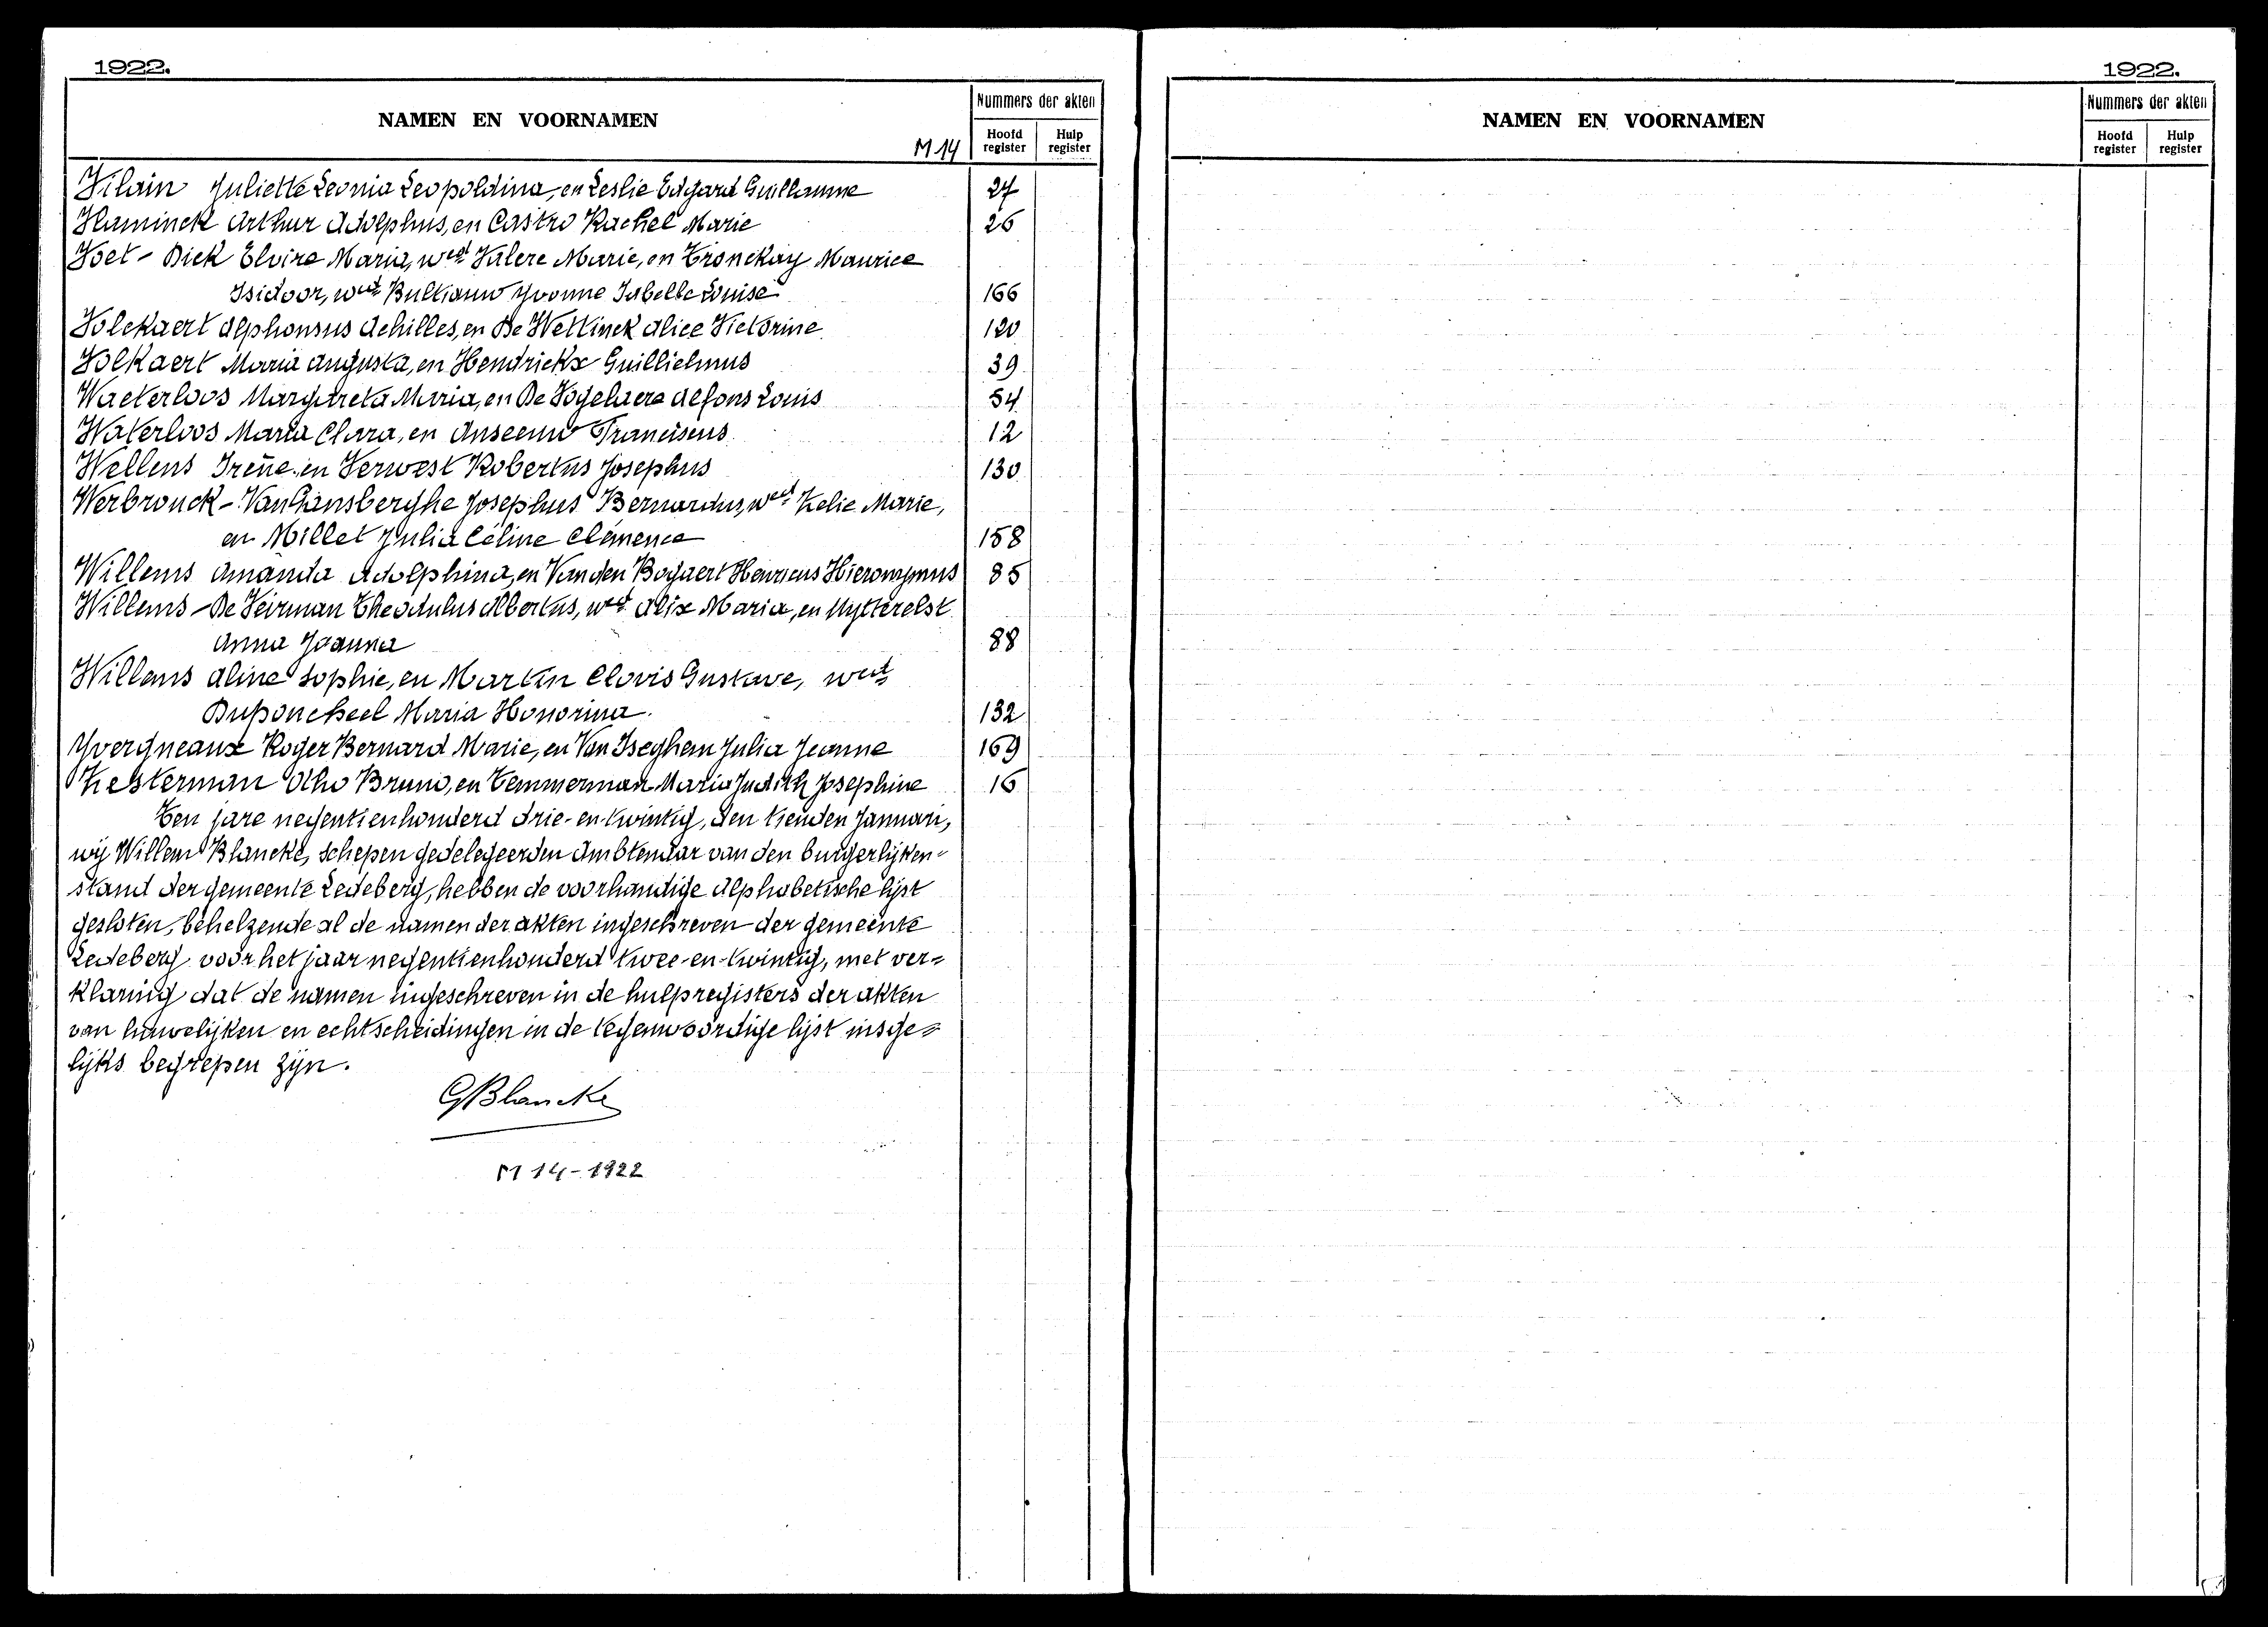 1922.
NAMEN EN VOORNAMEN
M 14
Nummers der akten
Hoofd register
Hulp register
Vilain Juliette Leonia Leopoldina, en Leslie Edgard Guillaume 27
Vlaminck Arthur Adolphus, en Castro Rachel Marie 26
Voet - Dick Elvire Maria, wed Valere Marie, en Tronckay Maurice
Isidoor, wed Bultiauw Yvonne Isabelle Louise 166
Volckaert Alphonsus Achilles, en De Wettinck Alice Victorine 120
Volkaert Maria Augusta, en Hendrickx Guillielmus 39
Waeterloos Margareta Maria, en De Vogelaere Alfons Louis 54
Waterloos Maria Clara, en Anseeuw Franciscus 12
Wellens Irene, en Verwest Robertus Josephus 130
Werbrouck - Van Gansberghe Josephus Bernardus, wed Zelie Marie,
en Millet Julia Céline Clémence 158
Willems Amanda Adolphina, en Van den Bogaert Henricus Hieronymus 85
Willems - De Veirman Theodulus Albertus, wed Alix Maria, en Uytterelst
Anna Joanna 88
Willems Aline Sophie, en Martin Clovis Gustave, wed
Duponcheel Maria Honorina. 132
Yvergneaux Roger Bernard Marie, en Van Iseghem Julia Jeanne 169
Zesterman Otho Bruno, en Temmerman Maria Judith Josephine 16
Ten jare negentienhonderd drie-en-twintig, den tienden Januari,
wij Willem Blancke, schepen gedelegeerden Ambtenaar van den burgerlijken-
stand der gemeente Ledeberg, hebben de voorhandige alphabetische lijst
gesloten, behelzende al de namen der akten ingeschreven der gemeente
Ledeberg voor het jaar negentienhonderd twee-en-twintig, met ver=
klaring dat de namen ingeschreven in de hulpregisters der akten
van huwelijken en echtscheidingen in de tegenwoordige lijst insge=
lijks begrepen zijn.
GBlancke
M 14 - 1922
1922.
NAMEN EN VOORNAMEN
Nummers der akten
Hoofd register
Hulp register